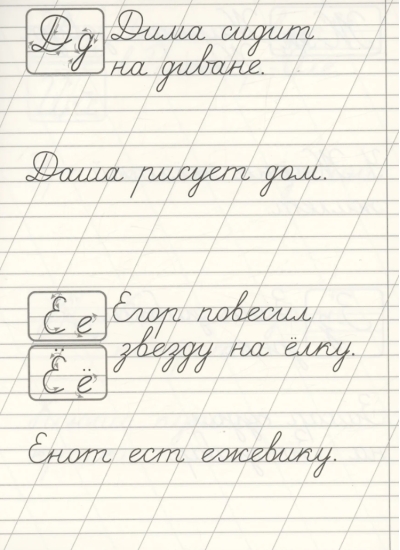 Д д Дима сидит
на диване.
Даша рисует дом.
Е е Егор повесил
Ё ё звезду на ёлку.
Енот ест ежевику.